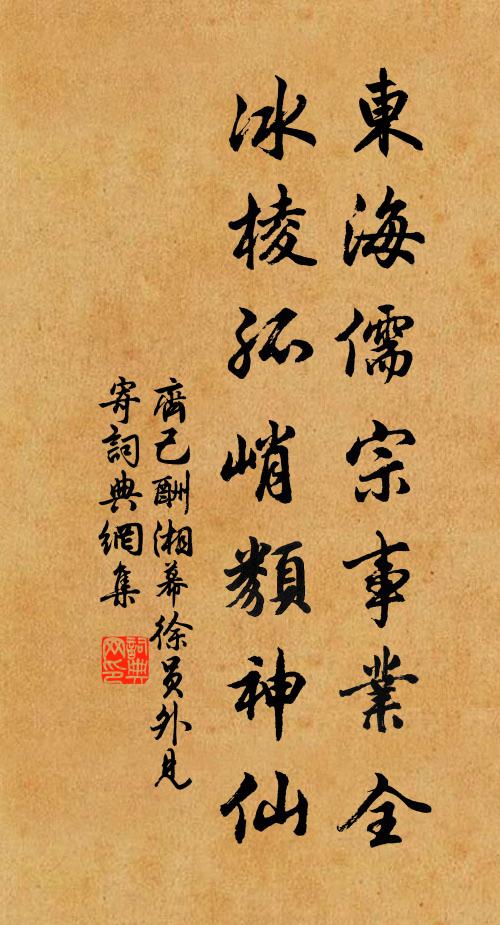 東海儒宗事業全
冰棱孤峭類神仙
齊己酬湘幕徐員外見
寄詞典網集
詞典网印